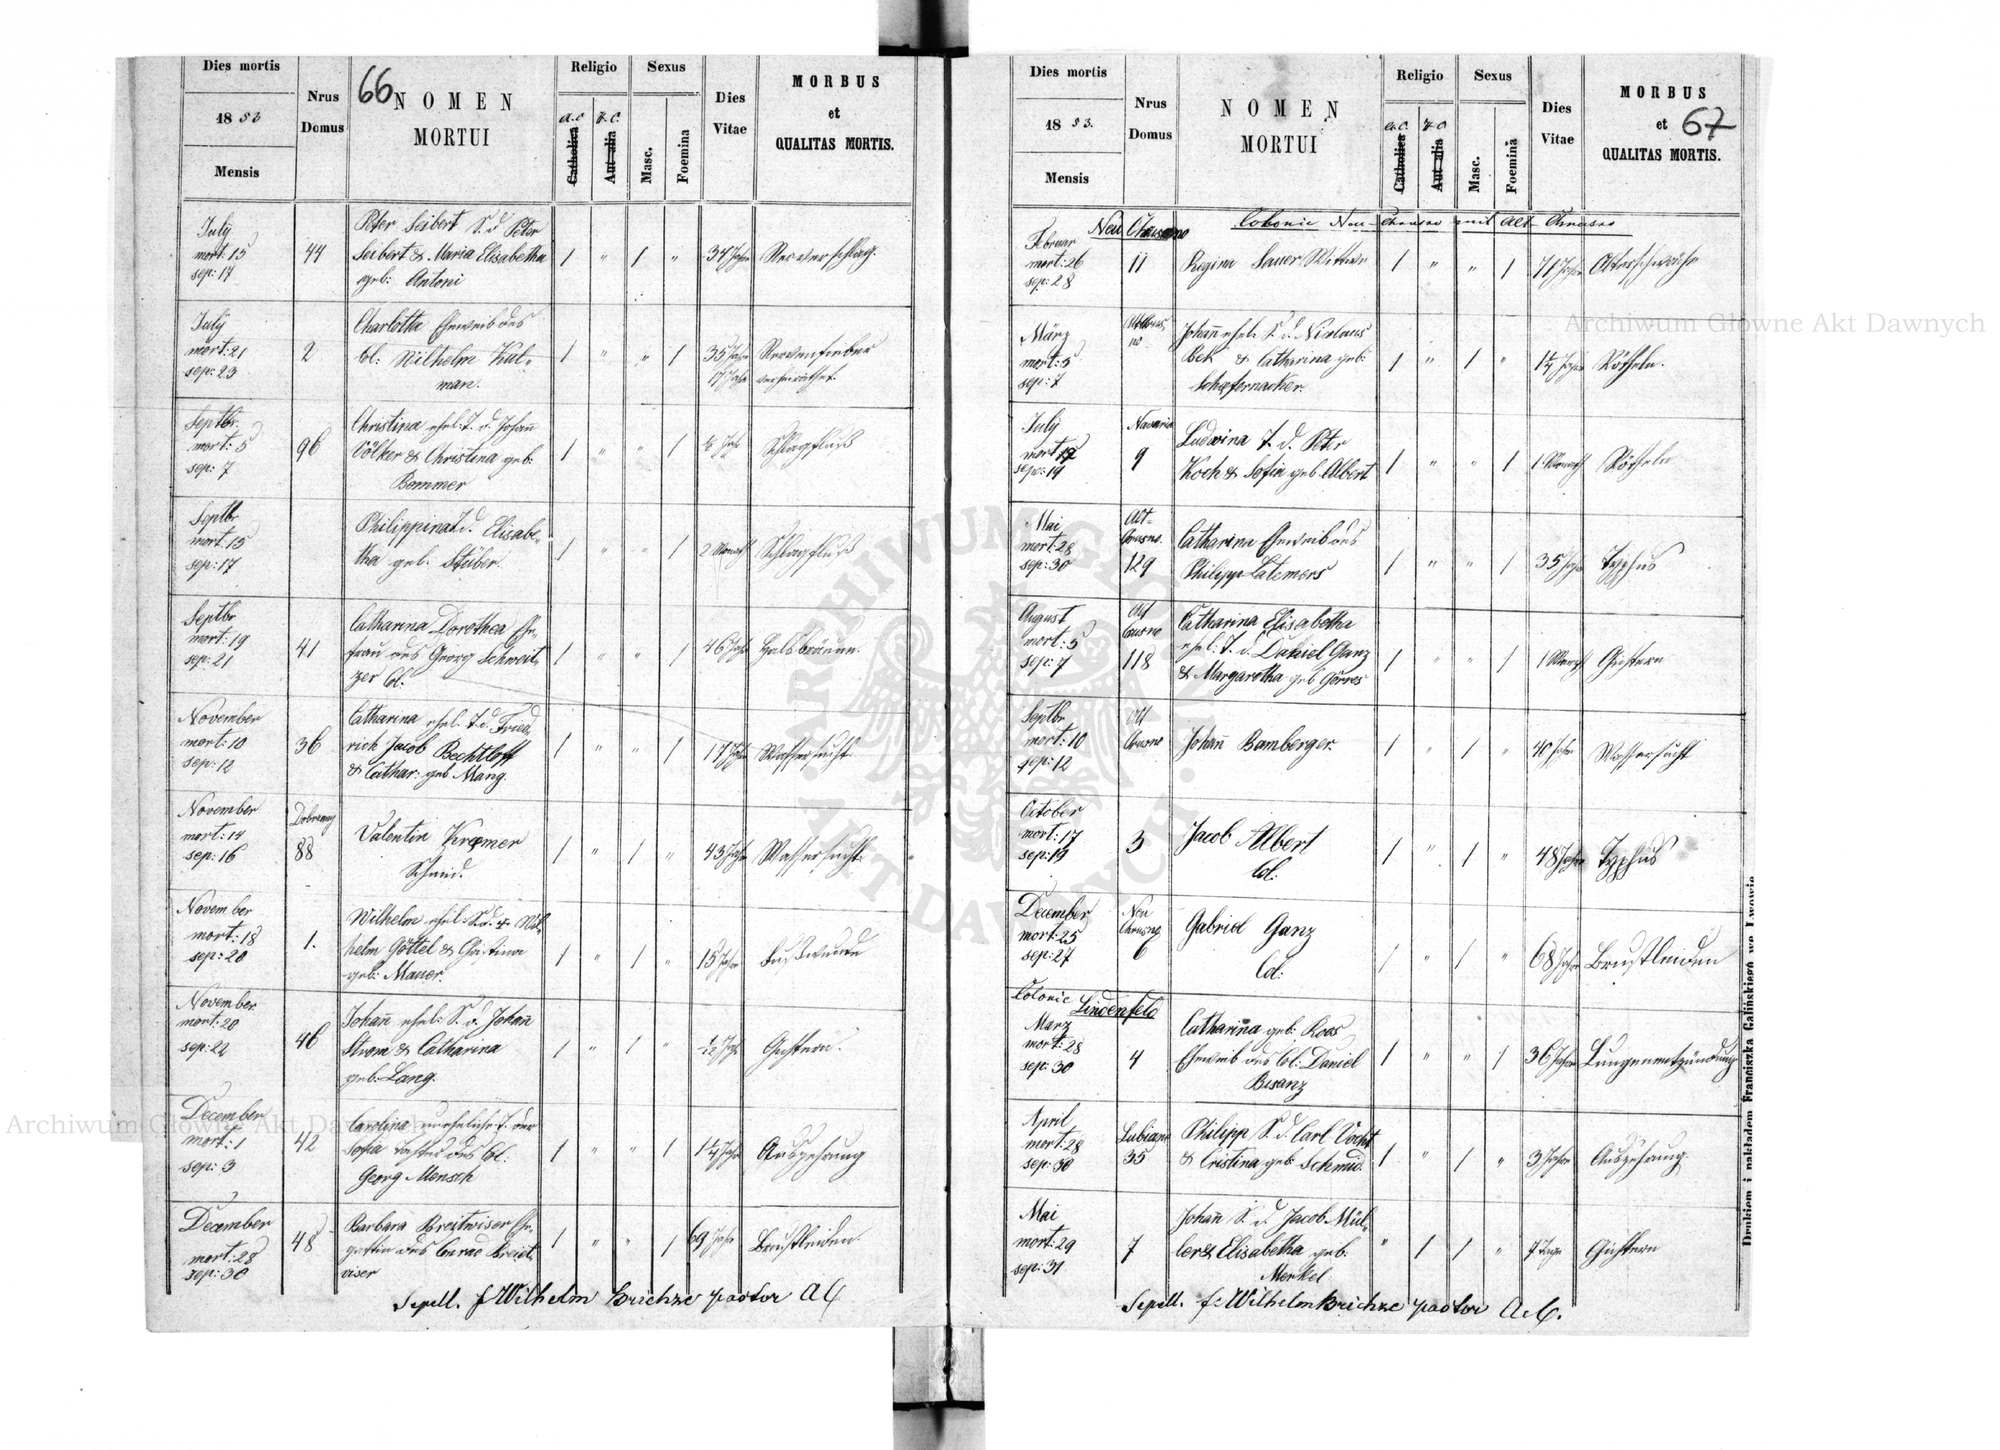 66
Dies mortis
1853
Mensis
Nrus Domus
NOMEN
MORTUI
Religio
A.C.
Catholica
H.C.
Aut alia
Sexus
Masc.
Foemina
Dies Vitae
MORBUS
et
QUALITAS MORTIS.
July
mort: 15
sep: 17
44
Peter Seibert S. d. Peter
Seibert & Maria Elisabetha
geb: Antoni
1 " 1 "
34 Jahre
Nervenschlag.
July
mort: 21
sep: 23
2
Charlotta Eheweib des
Col: Wilhelm Kul-
man.
1 " " 1
35 Jahre
17 Jahr
Nervenfieber
verheirathet.
Septbr.
mort: 5
sep: 7
96
Christina ehel: T. d. Johan̄
Völker & Christina geb:
Bammer
1 " " 1
½ Jahr
Schlagfluß
Septbr
mort: 15
sep: 17
Philippina T. d. Elisabe-
tha geb. Stüber.
1 " " 1
2 Monat
Schlagfluß
Septbr
mort: 19
sep: 21
41
Catharina Dorothea Ehe-
frau des Georg Schweit-
zer Col.
1 " " 1
46 Jahr
Halsbräune.
November
mort: 10
sep: 12
36
Catharina ehel. T. d. Fried-
rich Jacob Bechtloff
& Cathar: geb Mang.
1 " " 1
17 Jahre
Wassersucht.
November
mort: 14
sep: 16
Dobrzany
88
Valentin Kramer
Schmid.
1 " 1 "
43 Jahre
Wassersucht.
November
mort: 18
sep: 20
1.
Wilhelm ehel: S. d. Wil-
helm Göttel & Christina
geb: Mauer.
1 " 1 "
15 Jahre
Fußwunde
November
mort: 20
sep: 22
46
Johan̄ ehel: S. d. Johan̄
Strom & Catharina
geb: Lang.
1 " 1 "
1/12 Jahr
Gichtern.
December
mort: 1
sep: 3
42
Carolina uneheliche T. der
Sofia Tochter des Col:
Georg Mensch
1 " " 1
1¼ Jahr
Auszehrung
December
mort: 28
sep: 30
48
Barbara Breitwiser Ehe-
gattin des Conrad Breit-
wiser
1 " " 1
69 Jahre
Brustleiden.
Sepell. f. Wilhelm pastor AC
67
Dies mortis
1853.
Mensis
Nrus Domus
NOMEN
MORTUI
Religio
A.C.
Catholica
H.C.
Aut alia
Sexus
Masc.
Foemina
Dies Vitae
MORBUS
et
QUALITAS MORTIS.
Neu Chrusno
Colonie Neu-Chrusno mit Alt-Chrusno
Februar
mort: 26
sep: 28
11
Regina Sauer Wittwe
1 " " 1
71 Jahre
Altersschwäche
März
mort: 5
sep: 7
Johan̄ ehel. S. d. Nicolaus
Bek & Catharina geb:
Schefernacker.
1 " 1 "
1¼ Jahre
Rötheln.
July
mort: 17
sep: 19
Navaria
9
Ludwina T. d. Peter
Koch & Sofia geb Albert
1 " " 1
1 Monath
Rötheln
Mai
mort: 28
sep: 30
Alt-
Crusno.
129
Catharina Eheweib des
Philipp Latemers
1 " " 1
35 Jahre
Typhus
August
mort: 5
sep: 7
Alt
Crusno
118
Catharina Elisabetha
ehel: T. d. Daniel Ganz
& Margaretha geb Görres
1 " " 1
1 Monat
Gichtern
Septbr.
mort: 10
sep: 12
Alt
Crusno
Johan̄ Bamberger.
1 " 1 "
40 Jahre
Wassersucht
October
mort: 17
sep: 19
3
Jacob Albert
Col:
1 " 1 "
48 Jahre
Typhus
December
mort: 25
sep: 27
Neu
Chrusno
6
Gabriel Ganz
Col:
1 " 1 "
68 Jahre
Brustleiden
Colonie Lindenfeld
März
mort: 28
sep: 30
4
Catharina geb: Roos
Eheweib des Col: Daniel
Bisanz
1 " " 1
36 Jahre
Lungenentzündung
April
mort: 28
sep: 30
Lubiana
35
Philipp S. d. Carl Vocht
& Cristina geb: Schmid.
1 " 1 "
3 Jahre
Auszehrung
Mai
mort: 29
sep: 31
7
Johan̄ S. d. Jacob Mül-
ler & Elisabetha geb:
Merkel
" 1 1 "
7 Tage
Gichtern
Sepell. f. Wilhelm pastor A.C.
Drukiem i nakładem Franciszka Galińskiego we Lwowie
Archiwum Główne Akt Dawnych
Archiwum Główne Akt Dawnych
ARCHIWUM GŁÓWNE AKT DAWNYCH